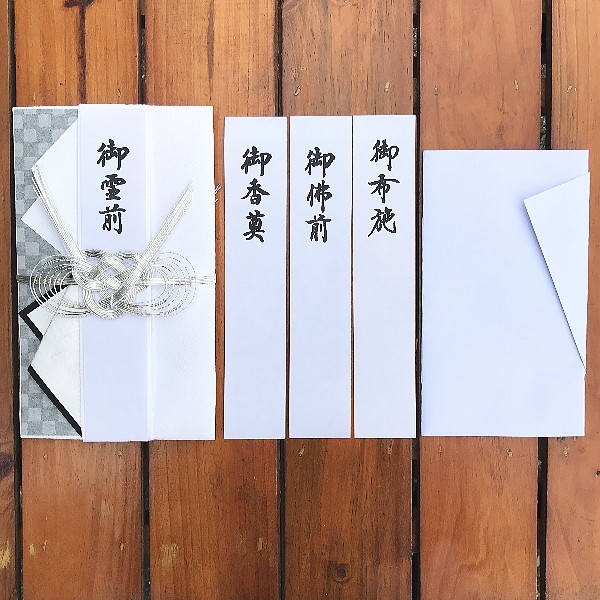 御霊前
御香奠
御佛前
御布施